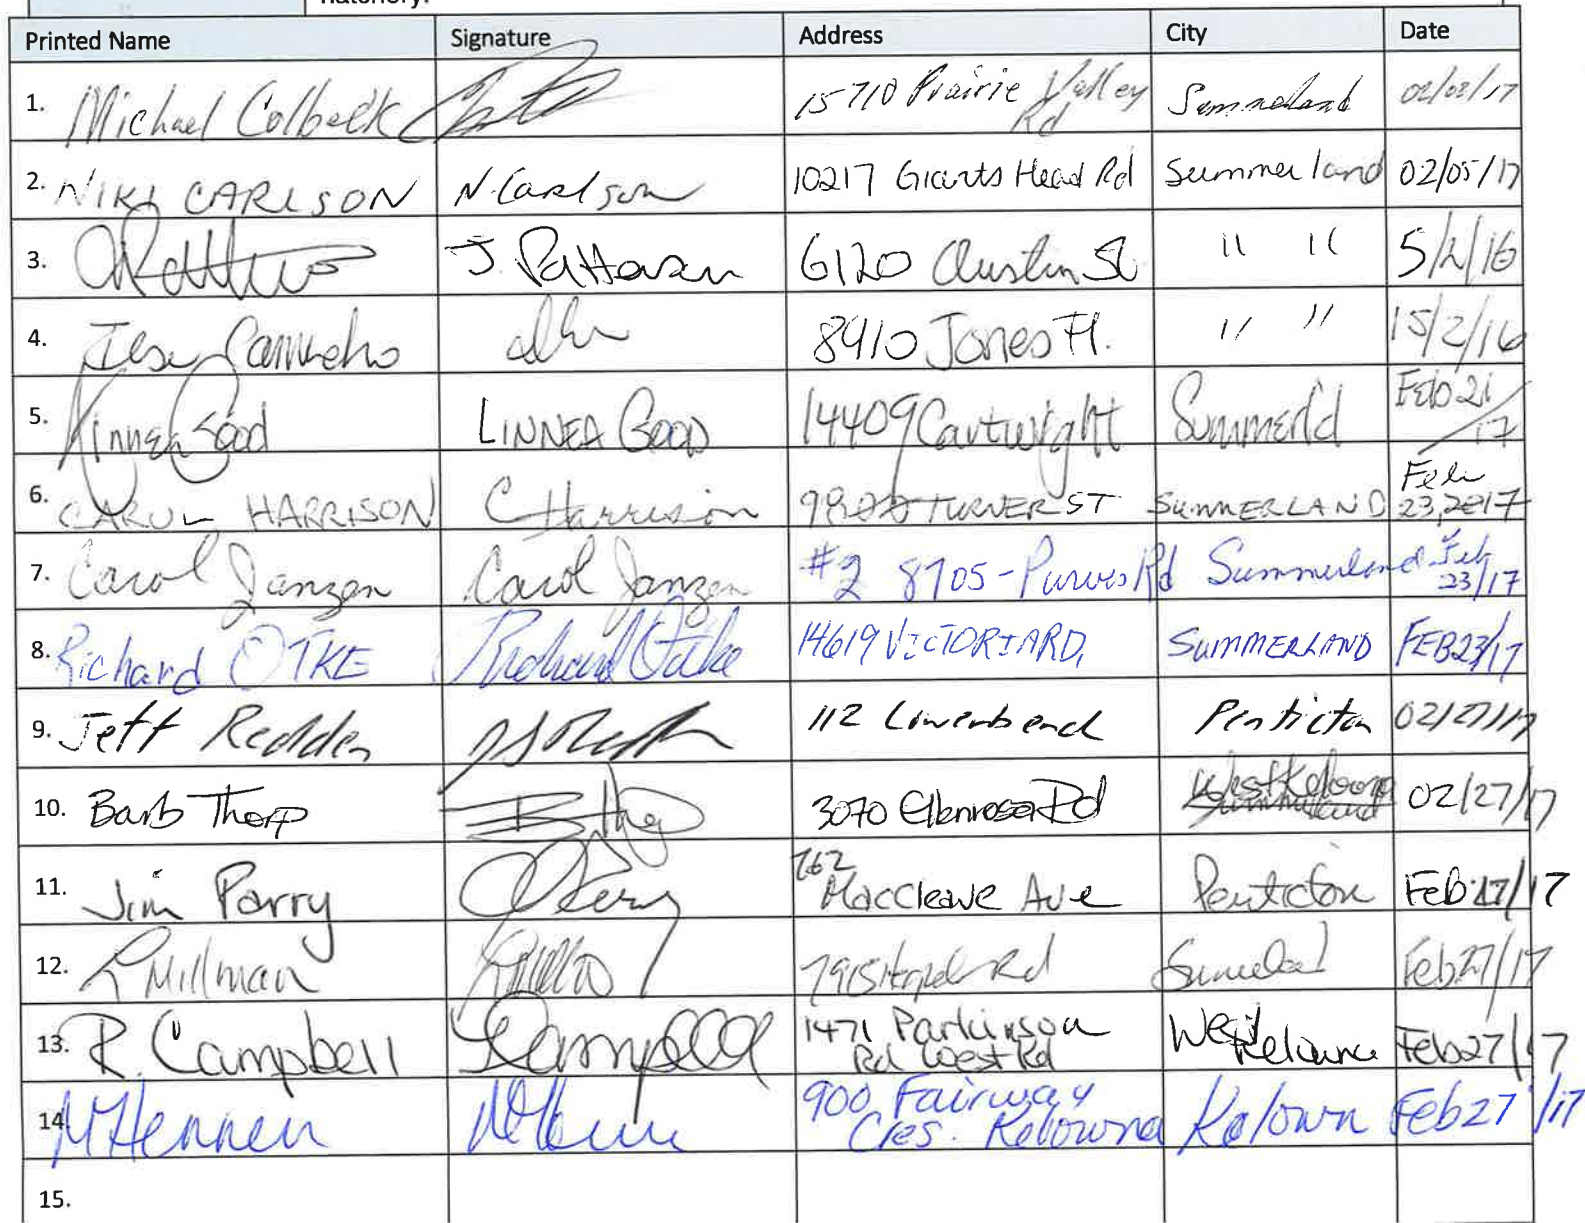 hatchery.
Printed Name Signature Address City Date
1. Michael Colbeck 15710 Prairie Valley Rd Summerland 02/02/17
2. NIKI CARLSON N. Carlson 10217 Giants Head Rd Summerland 02/05/17
3. J. Patterson 6120 Austin St " " 5/2/16
4. Camacho 8910 Jones Fl. " " 15/2/16
5. Linnea Good LINNEA GOOD 14409 Cartwright Summerl'd Feb 21/17
6. CAROL HARRISON C Harrison TURNER ST SUMMERLAND Feb 23, 2017
7. Carol Janzen Carol Janzen #2 8705 - Purves Rd Summerland Feb 23/17
8. Richard OTKE Richard Otke 14619 VICTORIA RD. SUMMERLAND FEB 23/17
9. Jeff Redden 112 Penticton 02/27/17
10. Barb Thorp 3070 Glenrosa Rd West Kelowna Summerland 02/27/17
11. Jim Parry 762 MacCleave Ave Penticton Feb 27/17
12. L Millman Rd Feb 27/17
13. R. Campbell Campbell 1471 Parkinson Rd West Kel West Kelowna Feb 27/17
14. M Hennen 900 Fairway Cres. Kelowna Kelown Feb 27/17
15.